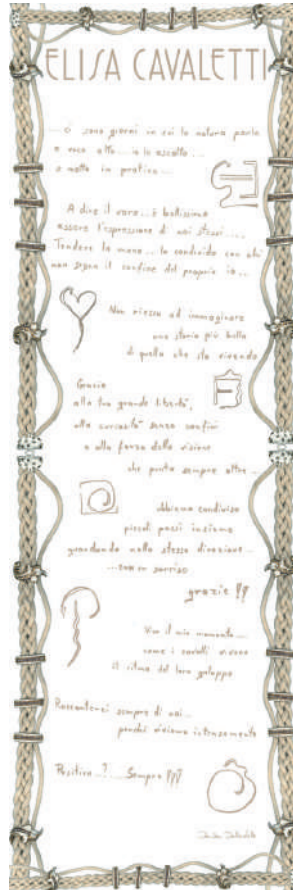 ELISA CAVALETTI
... ci sono giorni in cui la natura parla
a voce alta... io la ascolto...
e metto in pratica...
A dire il vero... è bellissimo
essere l'espressione di noi stessi....
Tendere la mano... la condivido con chi
non segna il confine del proprio io...
Non riesco ad immaginare
una storia più bella
di quella che sto vivendo
Grazie
alla tua grande libertà,
alla curiosità senza confini
e alla forza della visione
che punta sempre oltre...
abbiamo condiviso
piccoli passi insieme
guardando nella stessa direzione...
...con un sorriso
grazie !!
Vivo il mio momento...
come i cavalli vivono
il ritmo del loro galoppo
Raccontarsi sempre di noi...
perché viviamo intensamente
Positiva...?....Sempre !!!